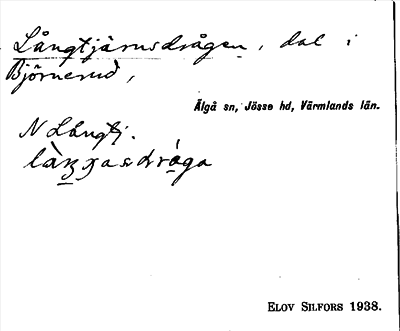 Långtjärnsdrågen, dal i
Björnerud,
Älgå sn, Jösse hd, Värmlands län.
N Långtj.
ELOV SILFORS 1938.